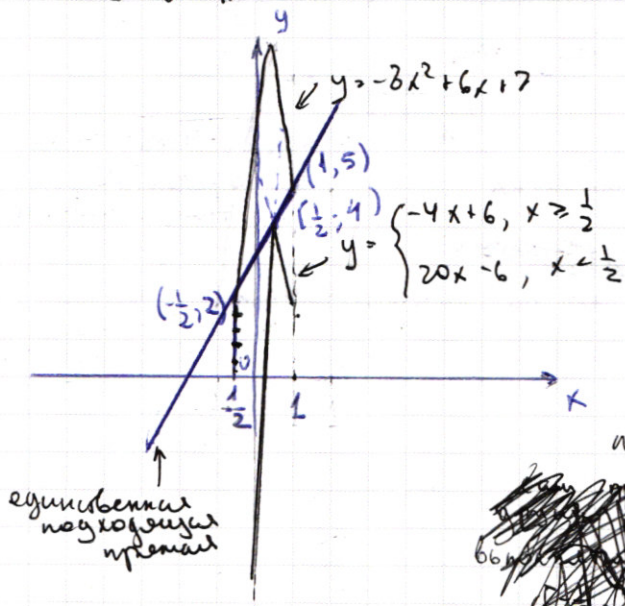 y
y = -3x² + 6x + 7
(1, 5)
(1/2, 4)
y = { -4x+6, x ≥ 1/2
20x-6, x < 1/2
(-1/2, 2)
0
1/2
1
x
единственная
подходящая
прямая